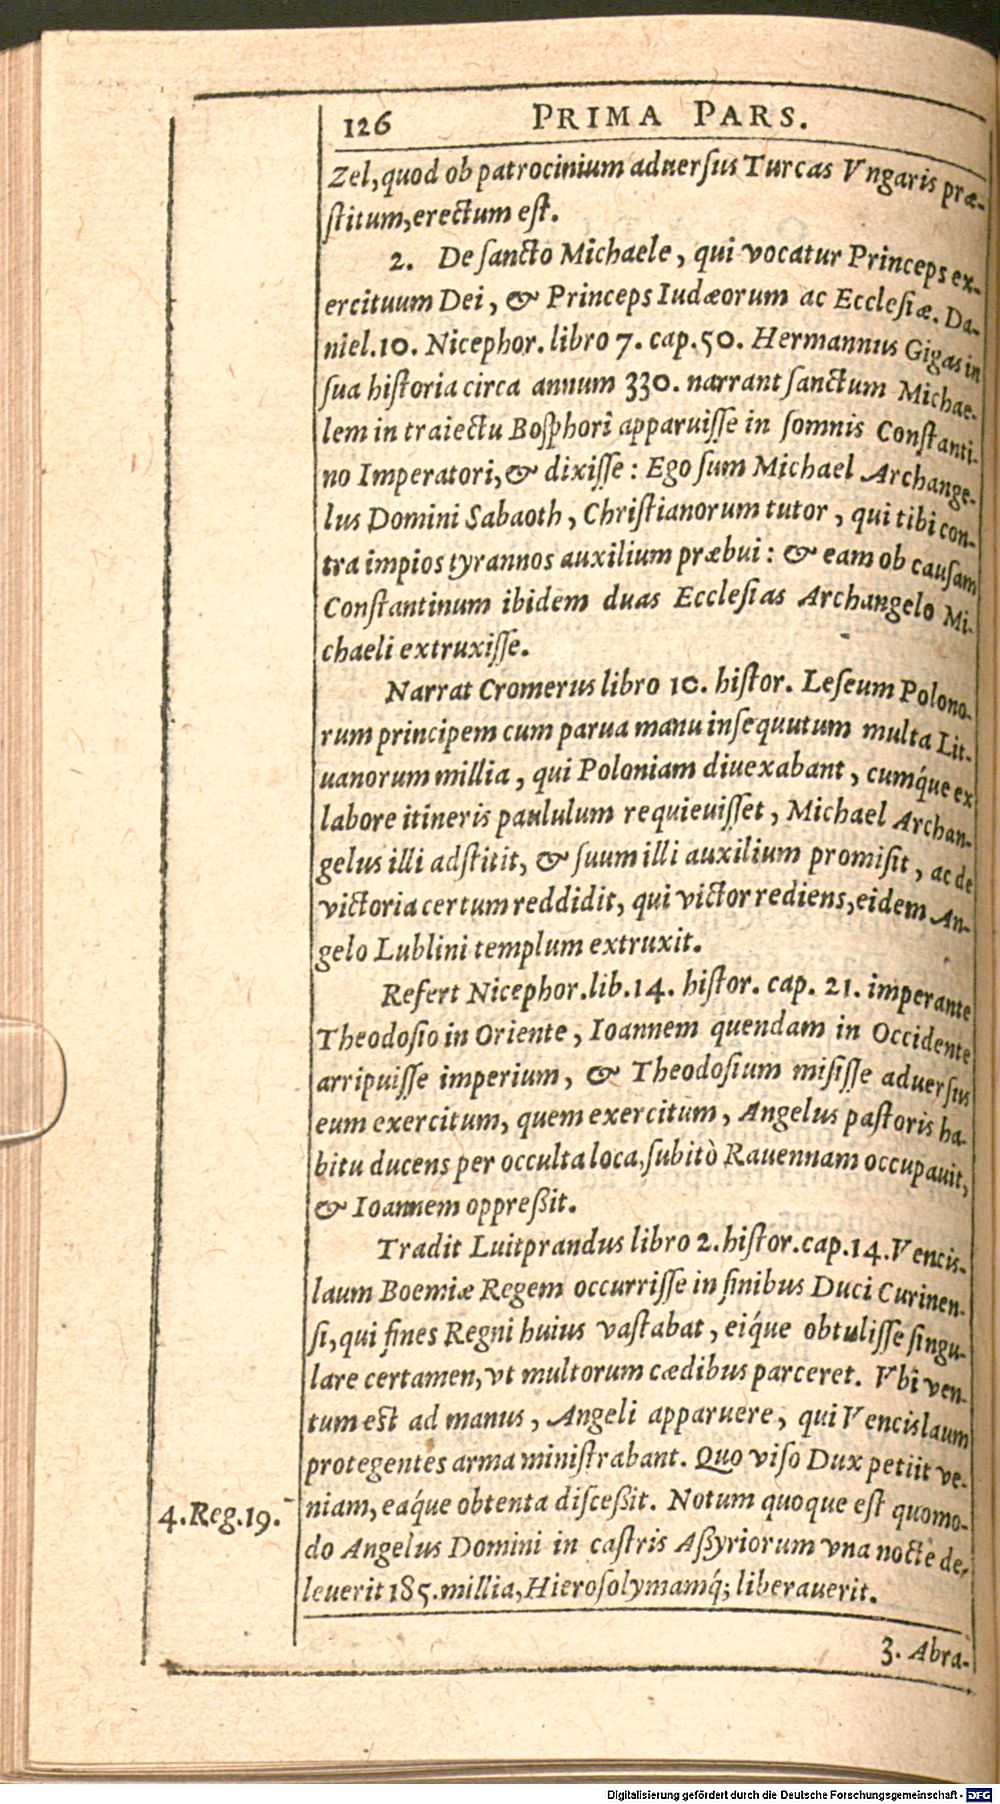 126 PRIMA PARS.
Zel, quod ob patrocinium aduersus Turcas Vngaris præ-
stitum, erectum est.
2. De sancto Michaele, qui vocatur Princeps ex-
ercituum Dei, & Princeps Iudæorum ac Ecclesiæ. Da-
niel. 10. Nicephor. libro 7. cap. 50. Hermannus Gigas in
sua historia circa annum 330. narrant sanctum Michae-
lem in traiectu Bosphori apparuisse in somnis Constanti-
no Imperatori, & dixisse: Ego sum Michael Archange-
lus Domini Sabaoth, Christianorum tutor, qui tibi con-
tra impios tyrannos auxilium præbui: & eam ob causam
Constantinum ibidem duas Ecclesias Archangelo Mi-
chaeli extruxisse.
Narrat Cromerus libro 10. histor. Leseum Polono-
rum principem cum parua manu insequutum multa Lit-
uanorum millia, qui Poloniam diuexabant, cumq́ue ex
labore itineris paululum requieuisset, Michael Archan-
gelus illi adstitit, & suum illi auxilium promisit, ac de
victoria certum reddidit, qui victor rediens, eidem An-
gelo Lublini templum extruxit.
Refert Nicephor. lib. 14. histor. cap. 21. imperante
Theodosio in Oriente, Ioannem quendam in Occidente
arripuisse imperium, & Theodosium misisse aduersus
eum exercitum, quem exercitum, Angelus pastoris ha-
bitu ducens per occulta loca, subitò Rauennam occupauit,
& Ioannem oppreßit.
Tradit Luitprandus libro 2. histor. cap. 14. Vencis-
laum Boemiæ Regem occurrisse in finibus Duci Curinen-
si, qui fines Regni huius vastabat, eiq́ue obtulisse singu-
lare certamen, vt multorum cædibus parceret. Vbi ven-
tum est ad manus, Angeli apparuere, qui Vencislaum
protegentes arma ministrabant. Quo viso Dux petiit ve-
niam, eaq́ue obtenta disceßit. Notum quoque est quomo-
4. Reg. 19.
do Angelus Domini in castris Aßyriorum vna nocte de-
leuerit 185. millia, Hierosolymamq́; liberauerit.
3. Abra-
Digitalisierung gefördert durch die Deutsche Forschungsgemeinschaft - DFG